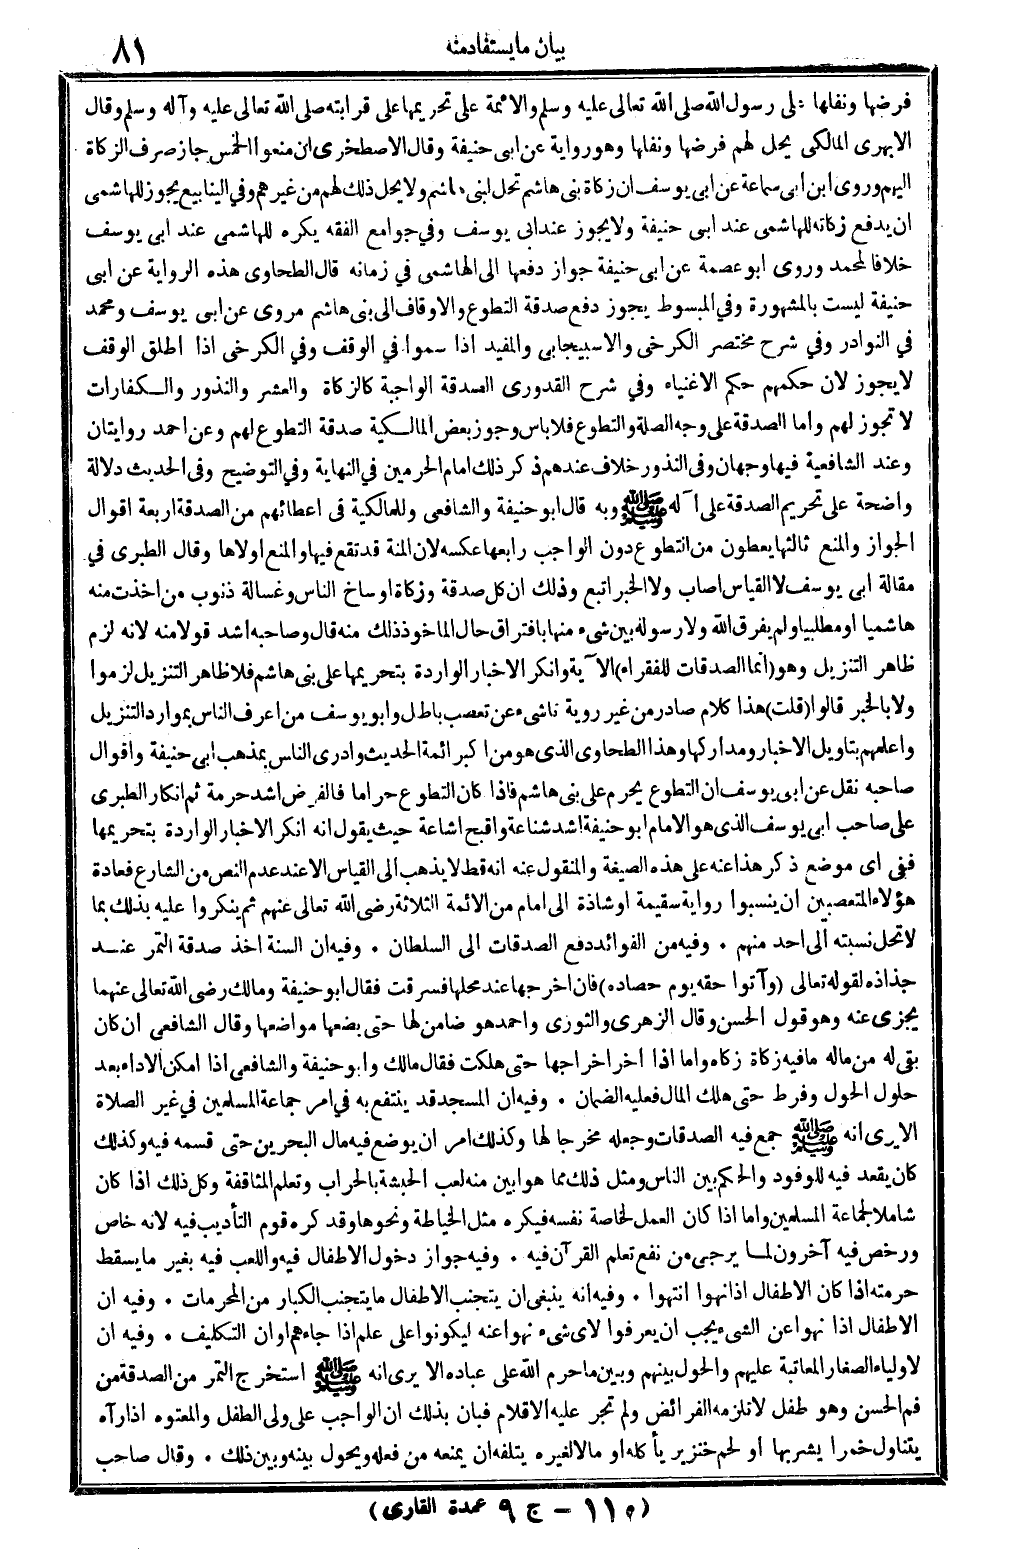 ٨١
بيان ما يستفاد منه
فرضها ونفلها على رسول الله صلى الله تعالى عليه وسلم والائمة على تحريمها على قرابته صلى الله تعالى عليه وآله وسلم وقال
الابهرى المالكى يحل لهم فرضها ونفلها وهو رواية عن ابى حنيفة وقال الاصطخرى ان منعوا الخمس جاز صرف الزكاة
اليهم وروى ابن ابى سماعة عن ابى يوسف ان زكاة بنى هاشم تحل لبنى هاشم ولا يحل ذلك لهم من غيرهم وفي الينابيع يجوز للهاشمى
ان يدفع زكاته للهاشمى عند ابى حنيفة ولا يجوز عند ابى يوسف وفي جوامع الفقه يكره للهاشمى عند ابى يوسف
خلافا لمحمد وروى ابو عصمة عن ابى حنيفة جواز دفعها الى الهاشمى في زمانه قال الطحاوى هذه الرواية عن ابى
حنيفة ليست بالمشهورة وفي المبسوط يجوز دفع صدقة التطوع والاوقاف الى بنى هاشم مروى عن ابى يوسف ومحمد
في النوادر وفي شرح مختصر الكرخى والاسبيجابى والمفيد اذا سموا في الوقف وفي الكرخى اذا اطلق الوقف
لا يجوز لان حكمهم حكم الاغنياء وفي شرح القدورى الصدقة الواجبة كالزكاة والعشر والنذور والكفارات
لا تجوز لهم واما الصدقة على وجه الصلة والتطوع فلا باس وجوز بعض المالكية صدقة التطوع لهم وعن احمد روايتان
وعند الشافعية فيها وجهان وفى النذور خلاف عندهم ذكر ذلك امام الحرمين في النهاية وفي التوضيح وفى الحديث دلالة
واضحة على تحريم الصدقة على آله ﷺ وبه قال ابو حنيفة والشافعى وللمالكية فى اعطائهم من الصدقة اربعة اقوال
الجواز والمنع ثالثها يعطون من التطوع دون الواجب رابعها عكسه لان المنة قد تقع فيها والمنع اولاها وقال الطبرى في
مقالة ابى يوسف لا القياس اصاب ولا الخبر اتبع وذلك ان كل صدقة وزكاة اوساخ الناس وغسالة ذنوب من اخذت منه
هاشميا او مطلبيا ولم يفرق الله ولا رسوله بين شىء منها بافتراق حال الماخوذ ذلك منه قال وصاحبه اشد قولا منه لانه لزم
ظاهر التنزيل وهو (انما الصدقات للفقراء) الآية وانكر الاخبار الواردة بتحريمها على بنى هاشم فلا ظاهر التنزيل لزموا
ولا بالخبر قالوا (قلت) هذا كلام صادر من غير روية ناشىء عن تعصب باطل وابو يوسف من اعرف الناس بموارد التنزيل
واعلمهم بتاويل الاخبار ومداركها وهذا الطحاوى الذى هو من اكبر ائمة الحديث وادرى الناس بمذهب ابى حنيفة واقوال
صاحبه نقل عن ابى يوسف ان التطوع يحرم على بنى هاشم فاذا كان التطوع حراما فالفرض اشد حرمة ثم انكار الطبرى
على صاحب ابى يوسف الذى هو الامام ابو حنيفة اشد شناعة واقبح اشاعة حيث يقول انه انكر الاخبار الواردة بتحريمها
ففى اى موضع ذكر هذا عنه على هذه الصيغة والمنقول عنه انه قط لا يذهب الى القياس الا عند عدم النص من الشارع فعادة
هؤلاء المتعصبين ان ينسبوا رواية سقيمة او شاذة الى امام من الائمة الثلاثة رضى الله تعالى عنهم ثم ينكروا عليه بذلك بما
لا تحل نسبته الى احد منهم . وفيه من الفوائد دفع الصدقات الى السلطان . وفيه ان السنة اخذ صدقة التمر عند
جذاذه لقوله تعالى (وآتوا حقه يوم حصاده) فان اخرجها عند محلها فسرقت فقال ابو حنيفة ومالك رضى الله تعالى عنهما
يجزى عنه وهو قول الحسن وقال الزهرى والثورى واحمد هو ضامن لها حتى يضعها مواضعها وقال الشافعى ان كان
بقى له من ماله ما فيه زكاة زكاه واما اذا اخر اخراجها حتى هلكت فقال مالك وابو حنيفة والشافعى اذا امكن الاداء بعد
حلول الحول وفرط حتى هلك المال فعليه الضمان . وفيه ان المسجد قد ينتفع به في امر جماعة المسلمين في غير الصلاة
الا يرى انه ﷺ جمع فيه الصدقات وجعله مخرجا لها وكذلك امر ان يوضع فيه مال البحرين حتى قسمه فيه وكذلك
كان يقعد فيه للوفود والحكم بين الناس ومثل ذلك مما هو ابين منه لعب الحبشة بالحراب وتعلم المثاقفة وكل ذلك اذا كان
شاملا لجماعة المسلمين واما اذا كان العمل لخاصة نفسه فيكره مثل الخياطة ونحوها وقد كره قوم التأديب فيه لانه خاص
ورخص فيه آخرون لما يرجى من نفع تعلم القرآن فيه . وفيه جواز دخول الاطفال فيه واللعب فيه بغير ما يسقط
حرمته اذا كان الاطفال اذا نهوا انتهوا . وفيه انه ينبغى ان يتجنب الاطفال ما يتجنب الكبار من المحرمات . وفيه ان
الاطفال اذا نهوا عن الشىء يجب ان يعرفوا لاى شىء نهوا عنه ليكونوا على علم اذا جاءهم اوان التكليف . وفيه ان
لاولياء الصغار المعاتبة عليهم والحول بينهم وبين ما حرم الله على عباده الا يرى انه ﷺ استخرج التمر من الصدقة من
فم الحسن وهو طفل لا تلزمه الفرائض ولم تجر عليه الاقلام فبان بذلك ان الواجب على ولى الطفل والمعتوه اذا رآه
يتناول خمرا يشربها او لحم خنزير يأكله او مالا لغيره يتلفه ان يمنعه من فعله ويحول بينه وبين ذلك . وقال صاحب
(م ١١ - ج ٩ عمدة القارى)